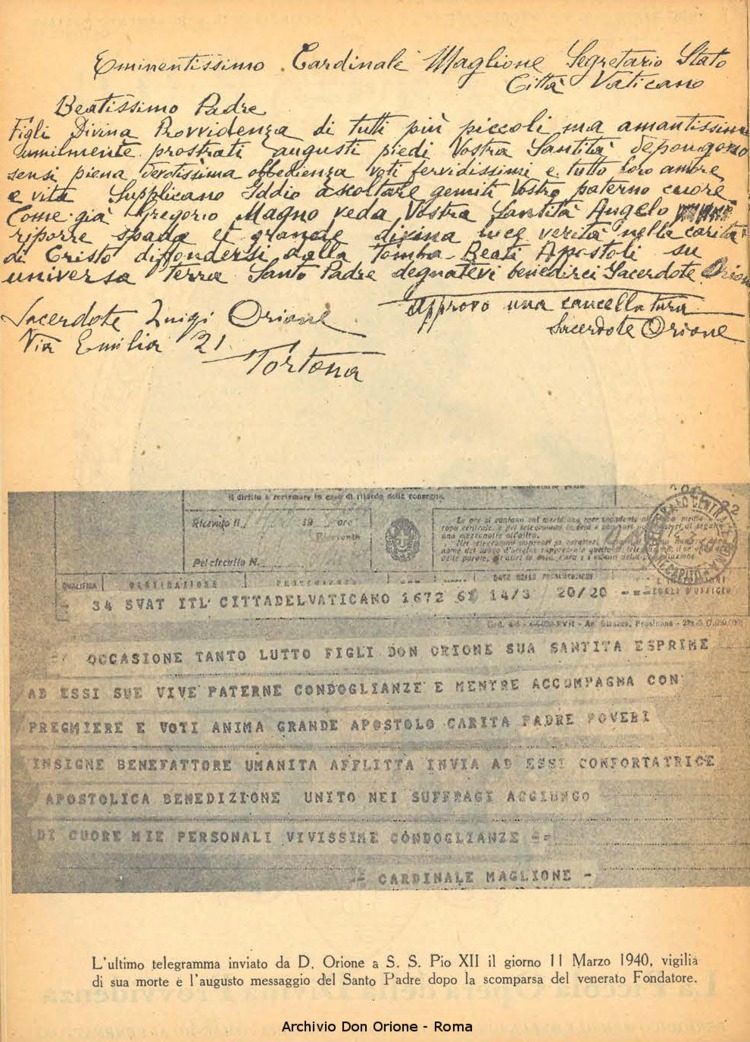 Eminentissimo Cardinale Maglione Segretario Stato
Città Vaticano
Beatissimo Padre
Figli Divina Provvidenza di tutti più piccoli ma amantissimi
umilmente prostrati augusti piedi Vostra Santità depongono
sensi piena devotissima obbedienza voti fervidissimi e tutto loro amore
e vita Supplicano Iddio ascoltare gemiti Vostro paterno cuore
Come già Gregorio Magno veda Vostra Santità Angelo
riporre spada et grande divina luce verità nella carità
di Cristo diffondersi dalla Tomba Beati Apostoli su
universa terra Santo Padre degnatevi benedirci Sacerdote Orione
approvo una cancellatura
Sacerdote Orione
Sacerdote Luigi Orione
Via Emilia 21
Tortona
il diritto a reclamare in caso di ritardo della consegna.
Ricevuto il 19 ore
Pel circuito N.
QUALIFICA DESTINAZIONE PROVENIENZA
34 SVAT ITL CITTADELVATICANO 1672 61 14/3 20/20 -=-
OCCASIONE TANTO LUTTO FIGLI DON ORIONE SUA SANTITA ESPRIME
AD ESSI SUE VIVE PATERNE CONDOGLIANZE E MENTRE ACCOMPAGNA CON
PREGHIERE E VOTI ANIMA GRANDE APOSTOLO CARITA PADRE POVERI
INSIGNE BENEFATTORE UMANITA AFFLITTA INVIA AD ESSI CONFORTATRICE
APOSTOLICA BENEDIZIONE UNITO NEI SUFFRAGI AGGIUNGO
DI CUORE MIE PERSONALI VIVISSIME CONDOGLIANZE -=
= CARDINALE MAGLIONE -
L'ultimo telegramma inviato da D. Orione a S. S. Pio XII il giorno 11 Marzo 1940, vigilia
di sua morte e l'augusto messaggio del Santo Padre dopo la scomparsa del venerato Fondatore.
Archivio Don Orione - Roma